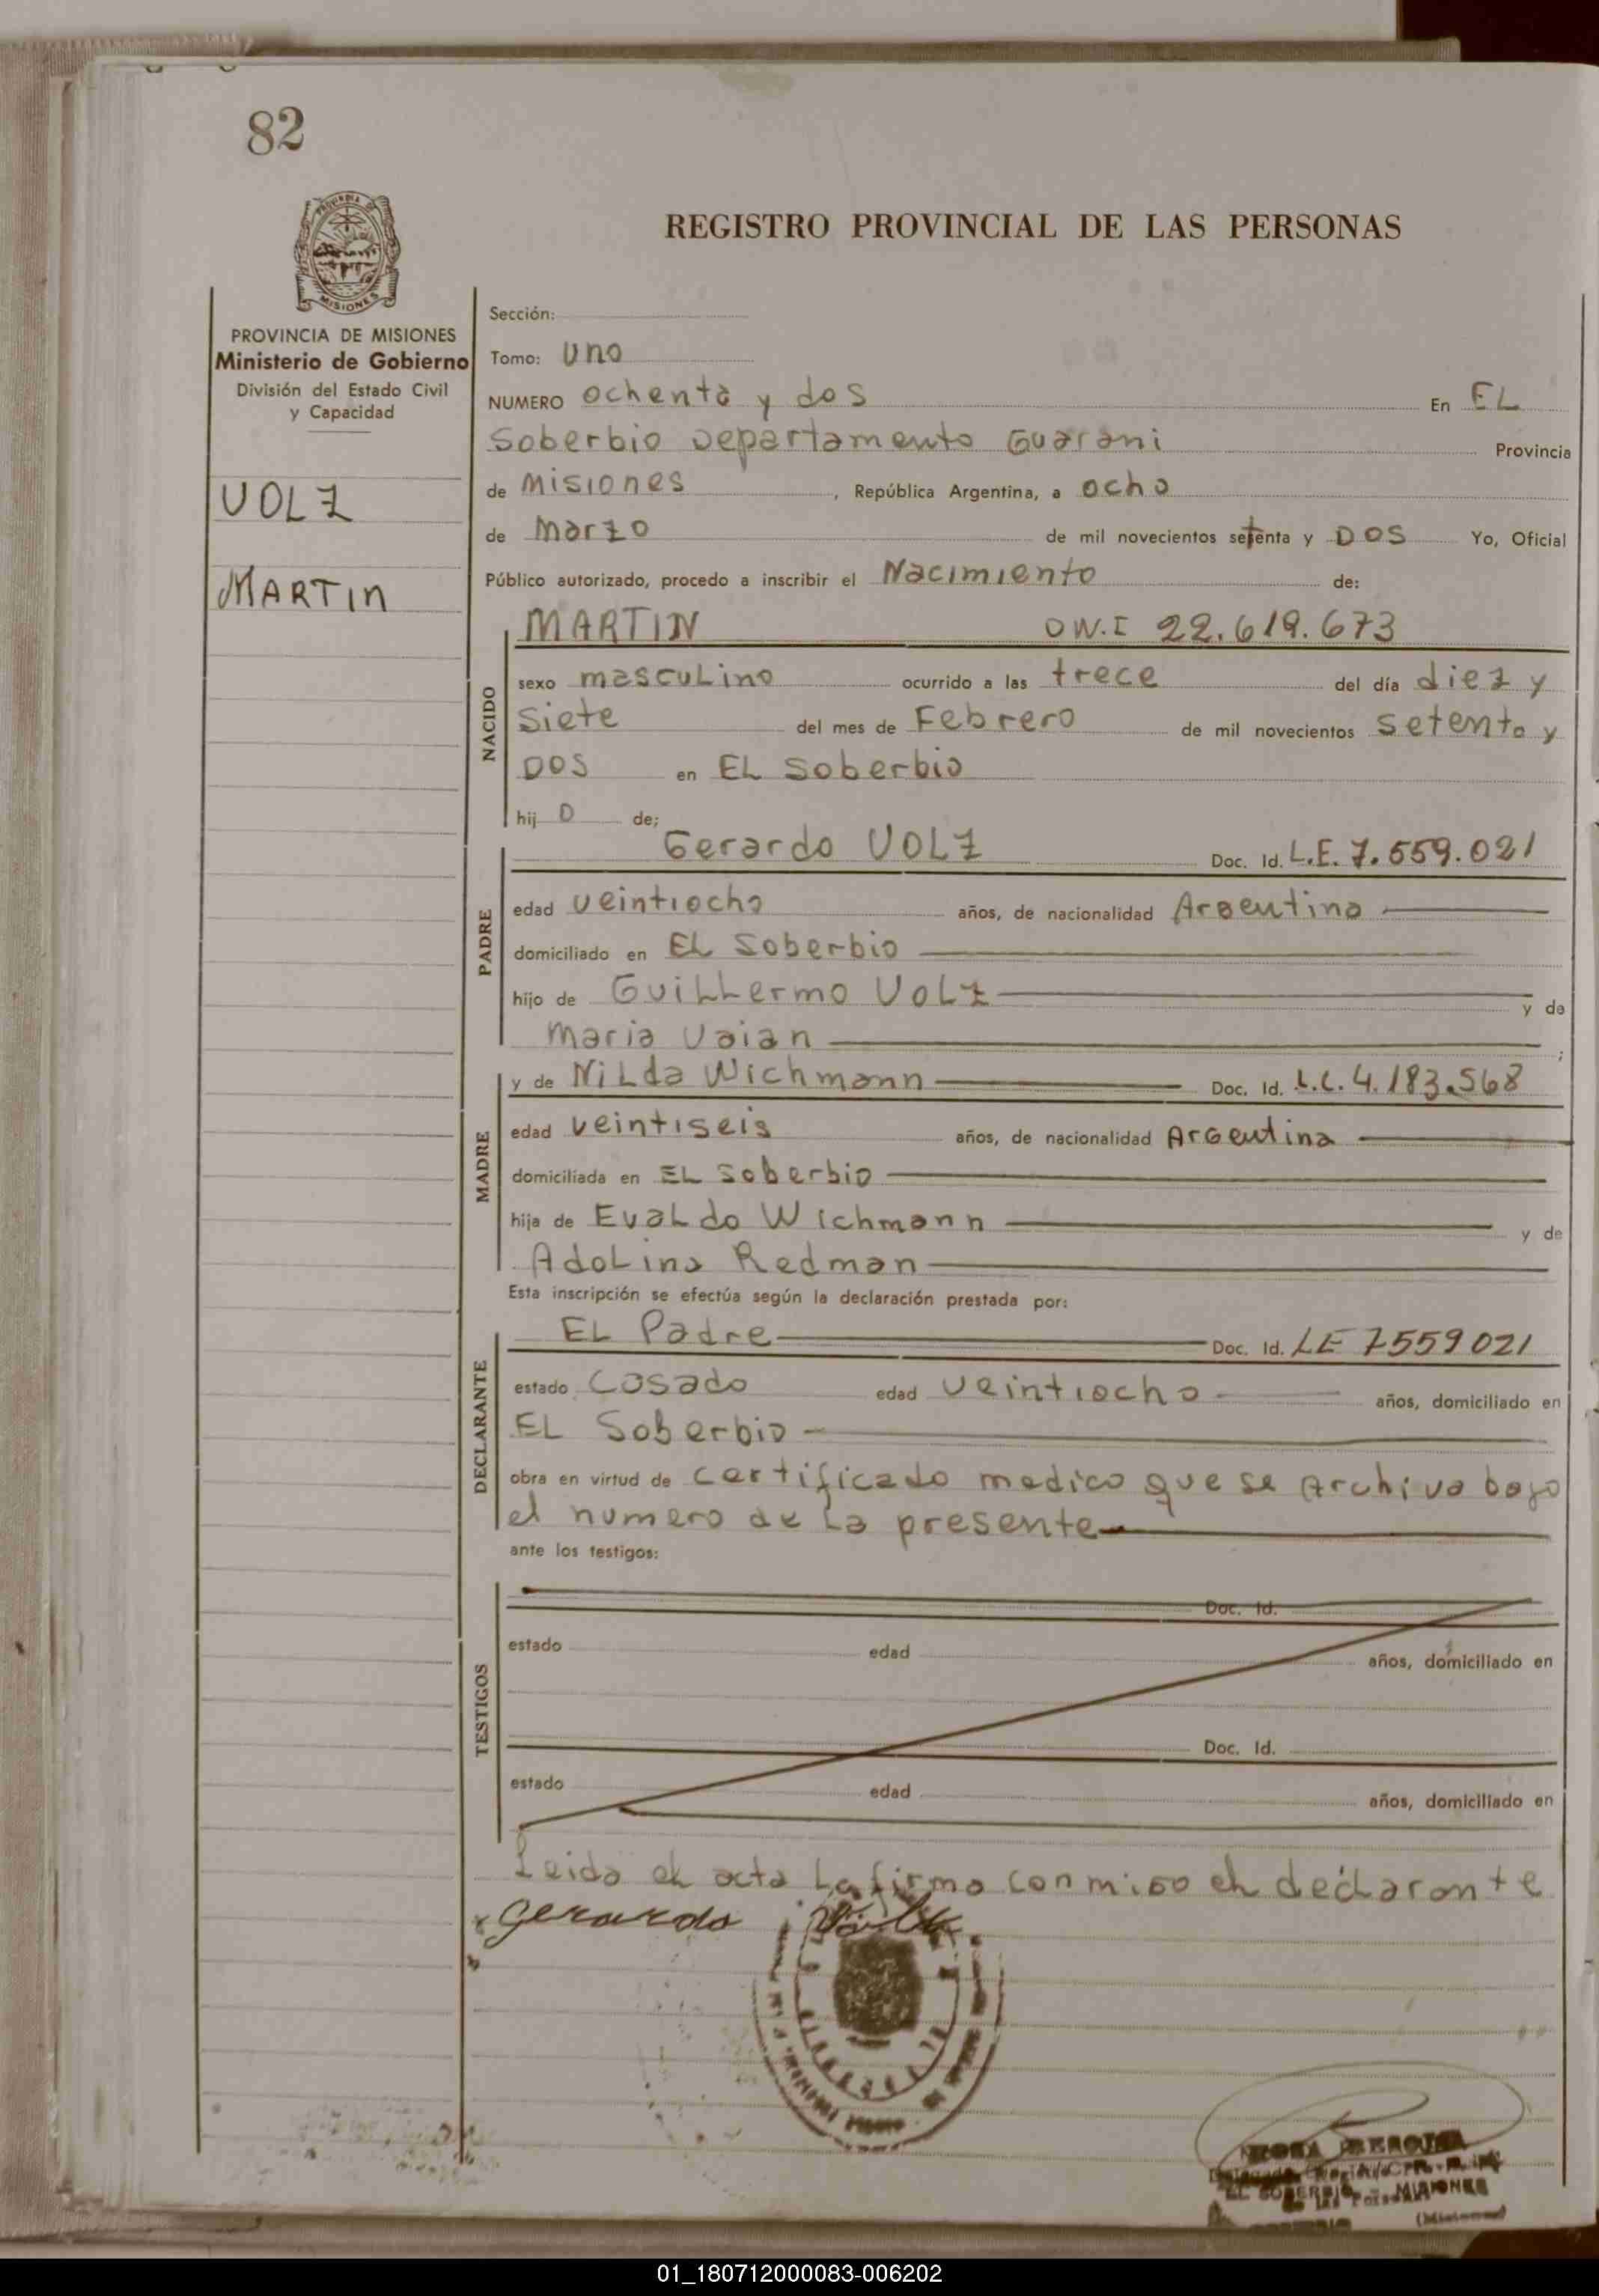 82
REGISTRO PROVINCIAL DE LAS PERSONAS
PROVINCIA DE MISIONES
Ministerio de Gobierno
División del Estado Civil
y Capacidad
VOLZ
MARTIN
Sección:
Tomo: uno
NUMERO ochenta y dos En EL
Soberbio Departamento Guarani Provincia
de Misiones, República Argentina, a ocho
de Marzo de mil novecientos setenta y DOS Yo, Oficial
Público autorizado, procedo a inscribir el Nacimiento de:
NACIDO
MARTIN D.N.I 22.619.673
sexo masculino ocurrido a las trece del día diez y
siete del mes de Febrero de mil novecientos setenta y
DOS en EL Soberbio
hij o de;
PADRE
Gerardo VOLZ Doc. Id. L.E. 7.559.021
edad veintiocho años, de nacionalidad Argentina
domiciliado en EL Soberbio
hijo de Guillermo VOLZ y de
Maria Vaian;
MADRE
y de Nilda Wichmann Doc. Id. L.C. 4.183.568
edad veintiseis años, de nacionalidad Argentina
domiciliada en EL Soberbio
hija de Evaldo Wichmann y de
Adolina Redman
Esta inscripción se efectúa según la declaración prestada por:
DECLARANTE
EL Padre Doc. Id. LE 7559021
estado Casado edad veintiocho años, domiciliado en
EL Soberbio
obra en virtud de certificado medico que se archiva bajo
el numero de La presente
ante los testigos:
TESTIGOS
Doc. Id.
estado edad años, domiciliado en
Doc. Id.
estado edad años, domiciliado en
Leida el acta La firma conmigo el declarante
Gerardo Volz
EL SOBERBIO - MISIONES
(Misiones)
01_180712000083-006202